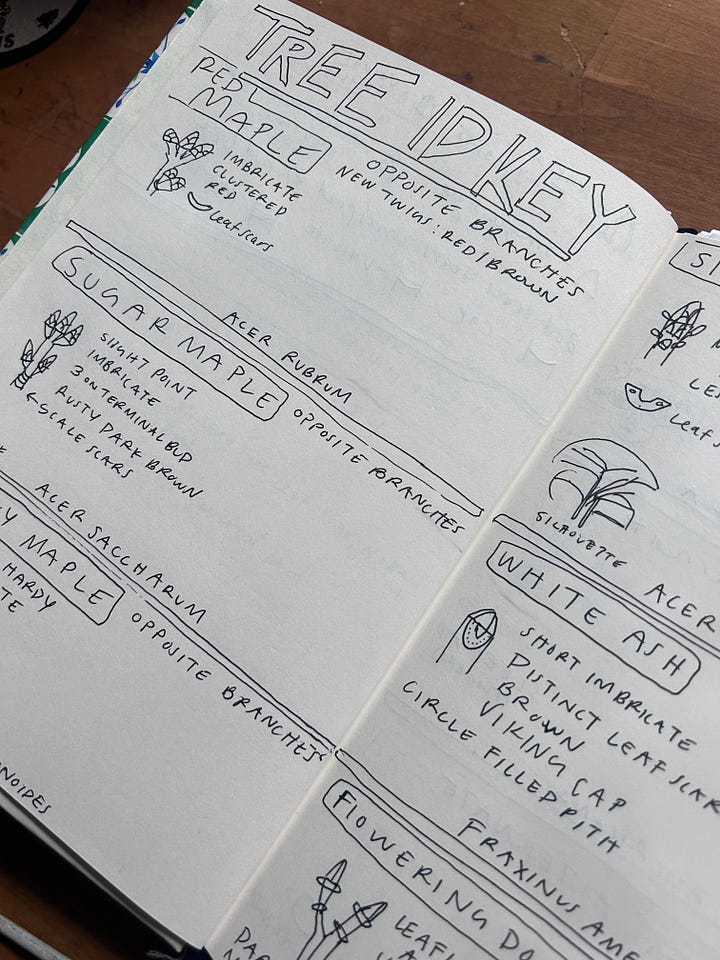 TREE ID KEY
RED
MAPLE
OPPOSITE BRANCHES
NEW TWIGS: RED/BROWN
IMBRICATE
CLUSTERED
RED
leaf scars
ACER RUBRUM
SUGAR MAPLE
OPPOSITE BRANCHES
SLIGHT POINT
IMBRICATE
3 ON TERMINAL BUD
RUSTY DARK BROWN
← SCALE SCARS
ACER SACCHARUM
Y MAPLE
OPPOSITE BRANCHES
HARDY
TE
NOIDES
SI
LE
leaf s
SILHOUETTE
ACER
WHITE ASH
SHORT IMBRICATE
DISTINCT LEAF SCAR
BROWN
VIKING CAP
CIRCLE FILLED PITH
FRAXINUS AME
FLOWERING DO
LEAFL